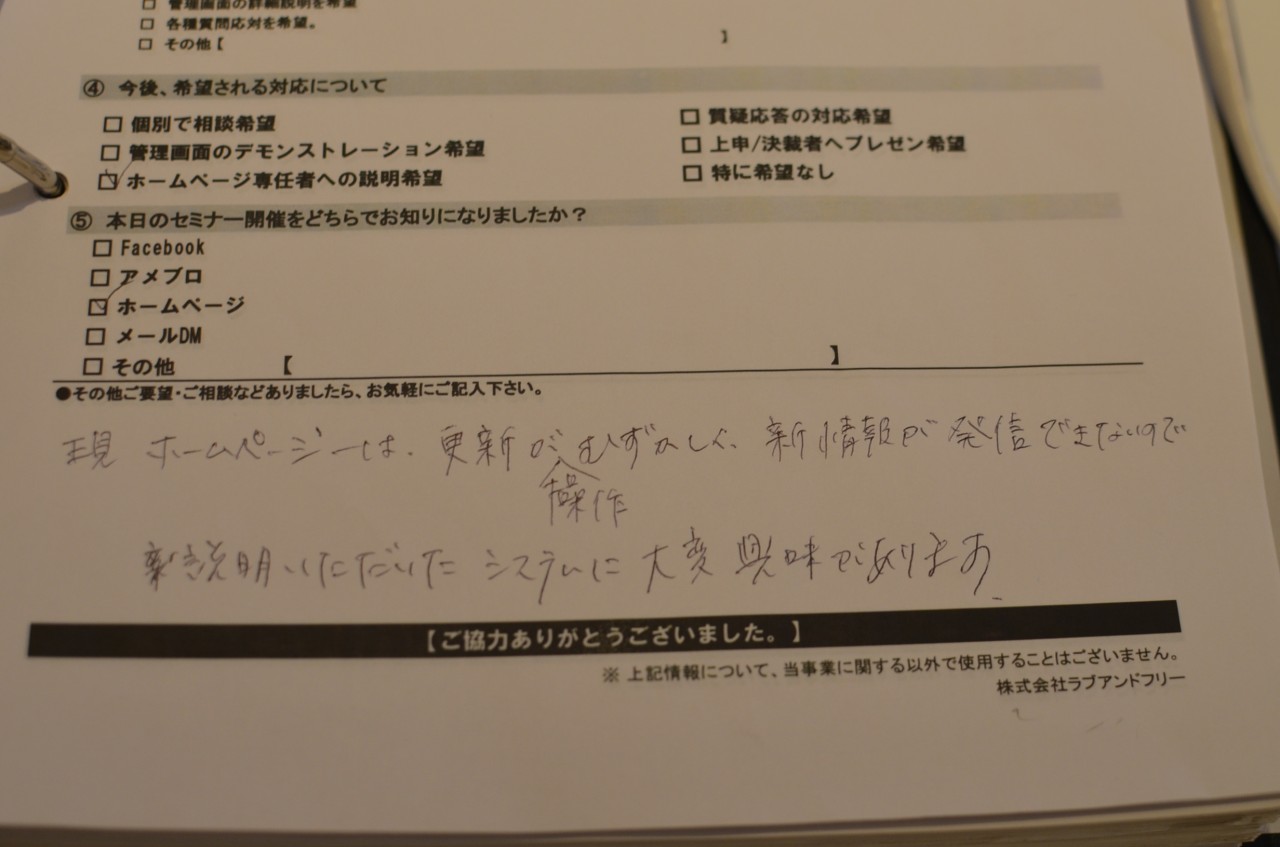 □ 管理画面の詳細説明を希望
□ 各種質問応対を希望。
□ その他【 】
④ 今後、希望される対応について
□ 個別で相談希望 □ 質疑応答の対応希望
□ 管理画面のデモンストレーション希望 □ 上申/決裁者へプレゼン希望
☑ ホームページ専任者への説明希望 □ 特に希望なし
⑤ 本日のセミナー開催をどちらでお知りになりましたか？
□ Facebook
□ アメブロ
☑ ホームページ
□ メールDM
□ その他 【 】
●その他ご要望・ご相談などありましたら、お気軽にご記入下さい。
現 ホームページは、更新がむずかしく、新情報が発信できないので
操作
説明いただいた システムに 大変 興味があります。
【ご協力ありがとうございました。】
※ 上記情報について、当事業に関する以外で使用することはございません。
株式会社ラブアンドフリー